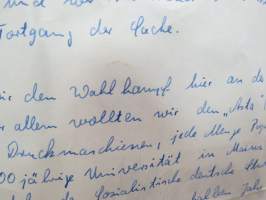 und
Fortgang der Sache.
wir den Wahlkampf hier an de
allem wollten wir den „Asta"
Druckmaschienen, jede Menge Pap
00 jährige Universität in Mainz
Sozialistische deutsche Stu
halben Jahr